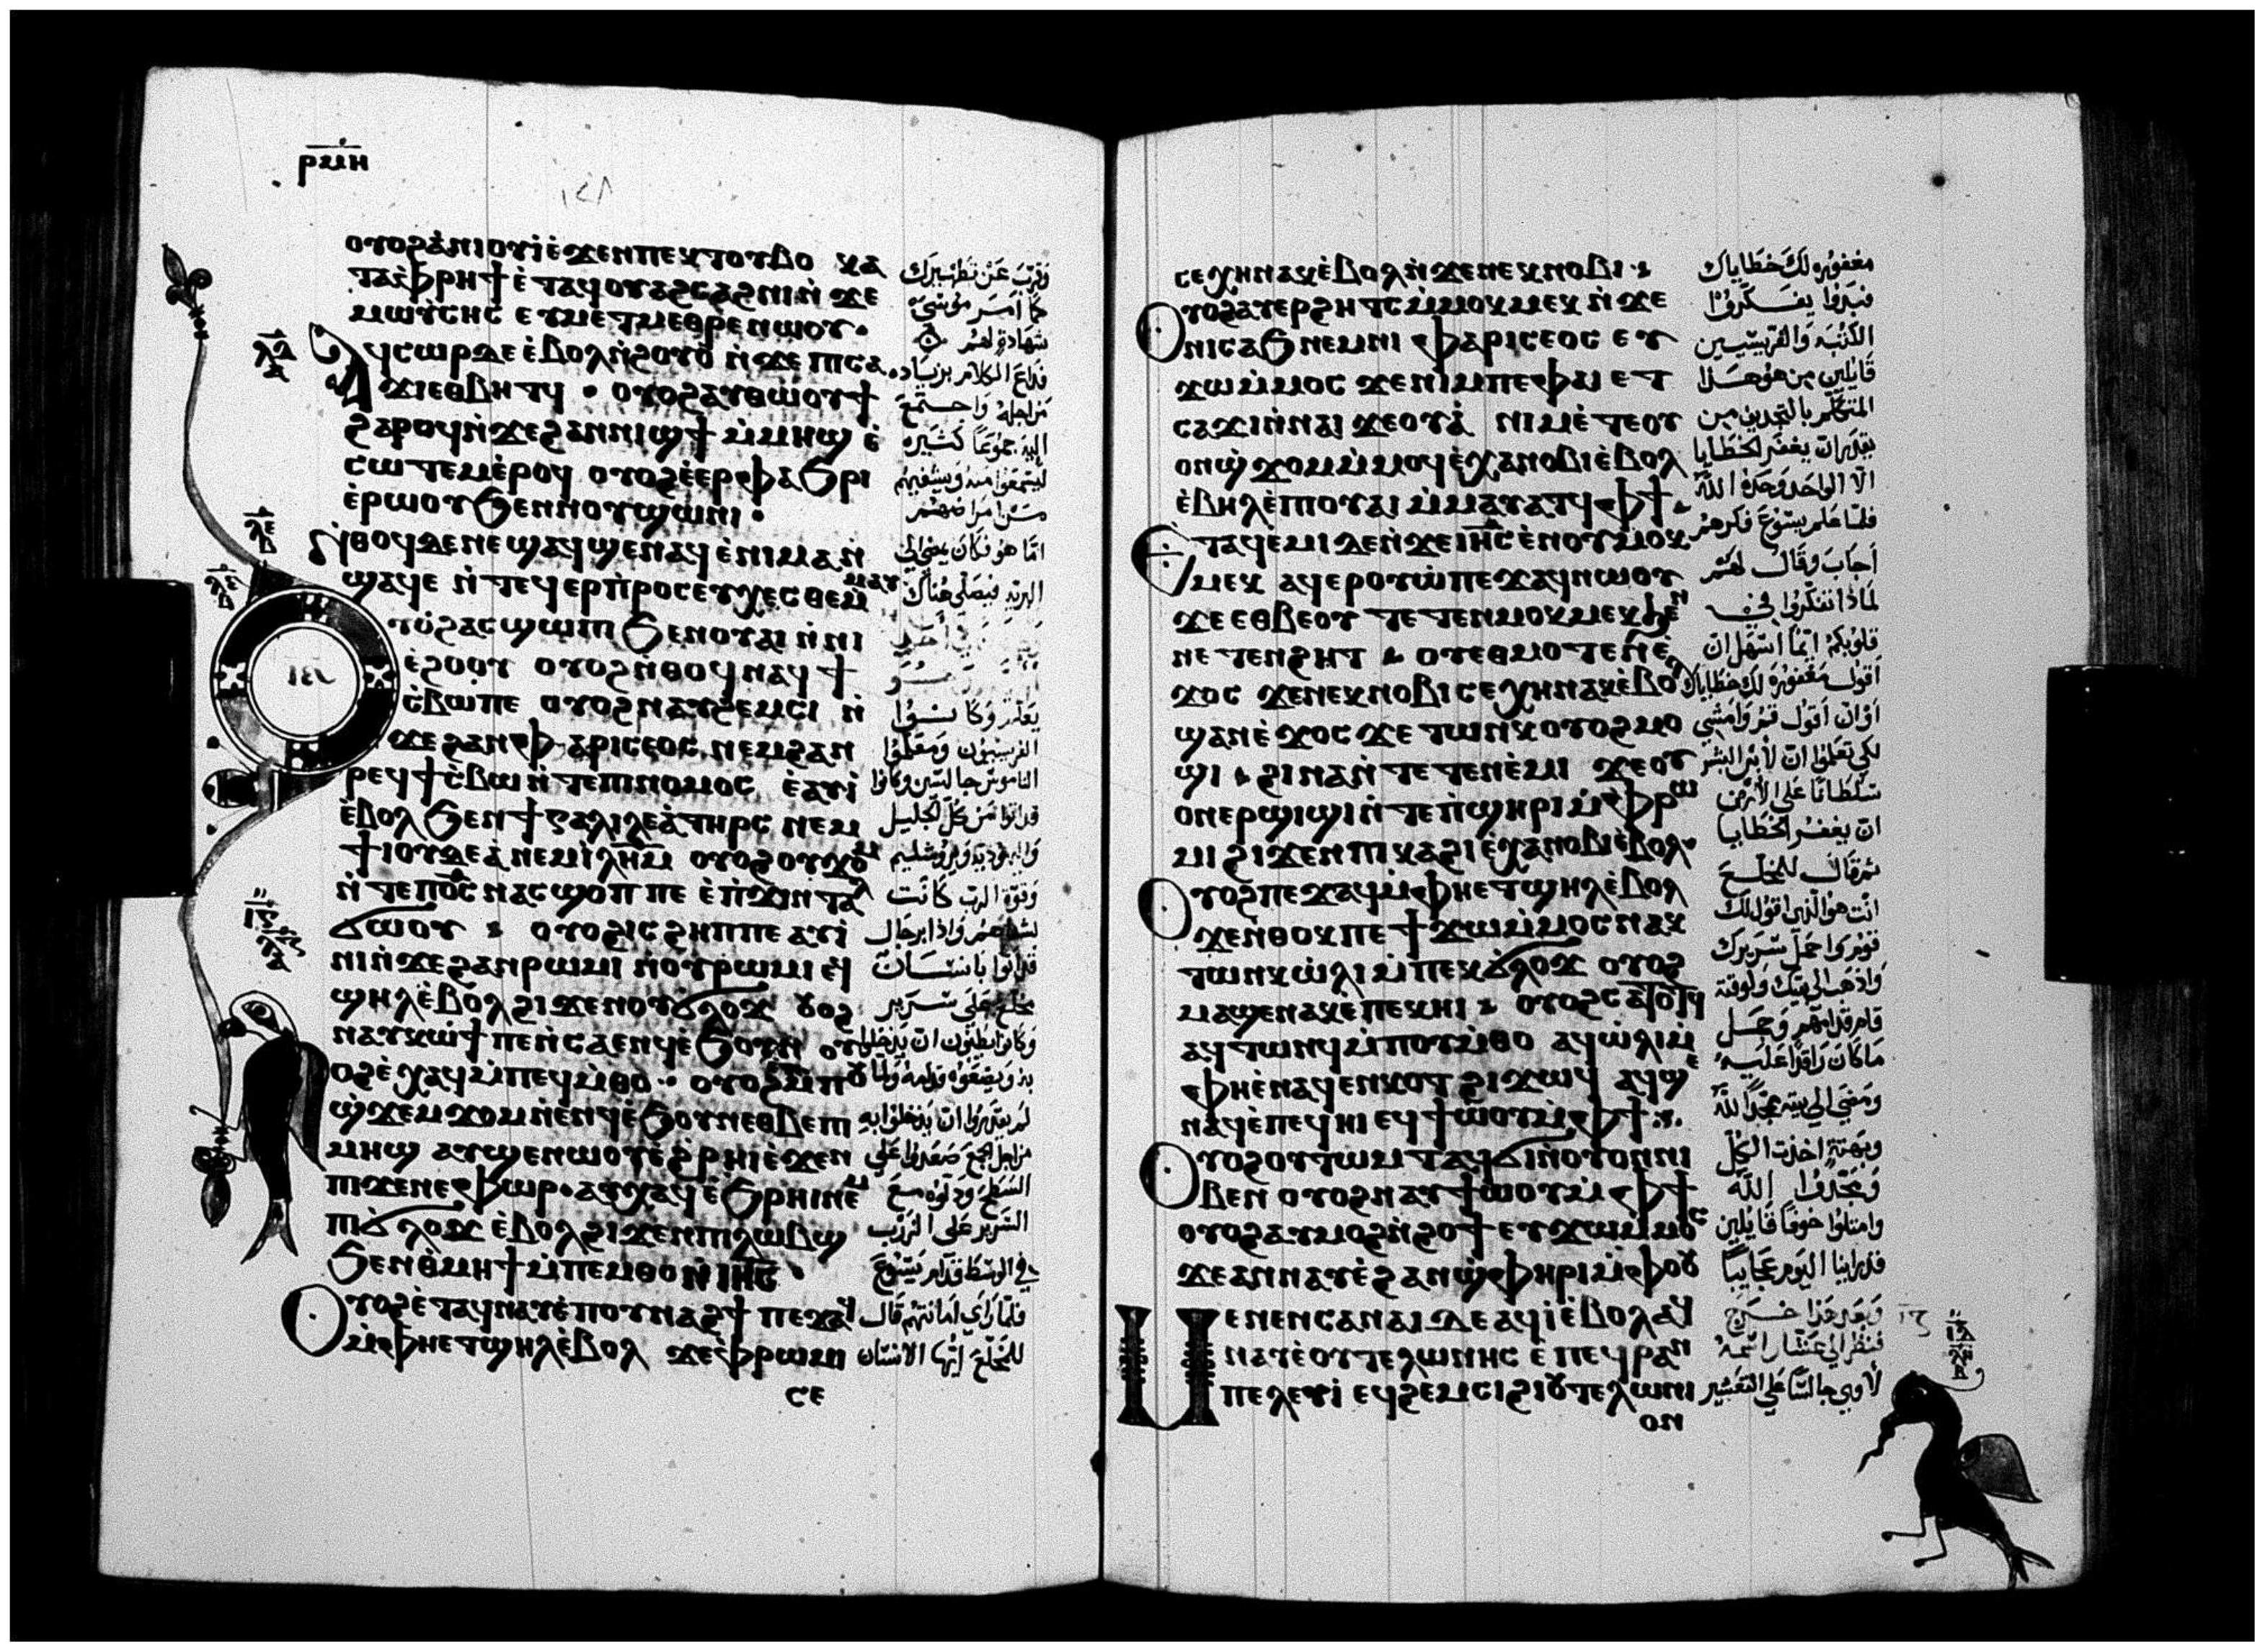 ⲣⲙⲏ
ⲟⲩⲟϩⲁⲛⲓⲟⲩⲓⲉϫⲉⲛⲡⲉⲕⲧⲟⲩⲃⲟ ⲕⲁ
ⲧⲁⲫⲣⲏϯ ⲉⲧⲁϥⲟⲩⲁϩⲥⲁϩⲛⲓⲛϫⲉ
ⲙⲱⲩⲥⲏⲥ ⲉⲩⲙⲉⲧⲙⲉⲑⲣⲉⲛⲱⲟⲩ
ⲁϥⲥⲱⲣⲇⲉ ⲉⲃⲟⲗⲛϩⲟⲩⲟ ⲛϫⲉ ⲡⲓⲥⲁ
ϫⲓⲉⲑⲃⲏⲧϥ · ⲟⲩⲟϩⲁⲩⲑⲱⲟⲩϯ
ϩⲁⲣⲟϥⲛϫⲉϩⲁⲛⲛⲓϣϯ ⲙⲙⲏϣ ⲉ
ⲥⲱⲧⲉⲙⲉⲣⲟϥ ⲟⲩⲟϩⲉⲉⲣⲫⲁϧⲣⲓ
ⲉⲣⲱⲟⲩϧⲉⲛⲛⲟⲩϣⲱⲛⲓ ·
ⲛⲑⲟϥⲇⲉⲛⲉϣⲁϥϣⲉⲛⲁϥⲉⲛⲓⲙⲁⲛ
ϣⲁϥⲉ ⲛⲧⲉϥⲉⲣⲡⲣⲟⲥⲉⲩⲭⲉⲥⲑⲉⲙⲙⲁⲩ
ⲟⲩⲟϩⲁⲥϣⲱⲡⲓ ϧⲉⲛⲟⲩⲁⲓ ⲛⲛⲓ
ⲉϩⲟⲟⲩ ⲟⲩⲟϩⲛⲑⲟϥⲛⲁϥϯ
ⲥⲃⲱⲡⲉ ⲟⲩⲟϩⲛⲁⲩϩⲉⲙⲥⲓ ⲛ
ϫⲉϩⲁⲛⲫⲁⲣⲓⲥⲉⲟⲥ ⲛⲉⲙϩⲁⲛ
ⲣⲉϥϯⲥⲃⲱⲛⲧⲉⲡⲓⲛⲟⲙⲟⲥ ⲉⲁⲩⲓ
ⲉⲃⲟⲗϧⲉⲛϯⲅⲁⲗⲓⲗⲉⲁⲧⲏⲣⲥ ⲛⲉⲙ
ϯⲓⲟⲩⲇⲉⲁⲛⲉⲙⲓⲗⲏⲙ ⲟⲩⲟϩⲟⲩϫⲟⲙ
ⲛⲧⲉⲡⲟⲥ ⲛⲁⲥϣⲟⲡ ⲡⲉ ⲉⲡϫⲓⲛⲧⲁⲗ
ϭⲱⲟⲩ ⲟⲩⲟϩⲓⲥ ϩⲏⲡⲡⲉ ⲁⲩⲓ
ⲛⲓⲛϫⲉϩⲁⲛⲣⲱⲙⲓ ⲛⲟⲩⲣⲱⲙⲓ ⲉϥ
ϣⲏⲗⲉⲃⲟⲗ ϩⲓϫⲉⲛⲟⲩϭⲗⲟϫ ⲟⲩⲟϩ
ⲛⲁⲩⲕⲱϯⲡⲉⲛⲥⲁⲉⲛϥⲉϧⲟⲩⲛ ⲟⲩ
ⲟϩⲉⲭⲁϥⲙⲡⲉϥⲙⲑⲟ ·· ⲟⲩⲟϩⲙⲡⲟⲩ
ϣϫⲉⲙϫⲟⲙⲛⲉⲛϥⲉϧⲟⲩⲛⲉⲑⲃⲉⲡⲓ
ⲙⲏϣ ⲁⲩϣⲉⲛⲱⲟⲩⲉϩⲣⲏⲓⲉϫⲉⲛ
ⲡϫⲉⲛⲉⲫⲱⲣ · ⲁⲩⲭⲁϥⲉϧⲣⲏⲓⲛⲉⲙ
ⲡⲓϭⲗⲟϫ ⲉⲃⲟⲗϩⲓϫⲉⲛⲡⲓⲗⲱⲃϣ
ϧⲉⲛⲑⲙⲏϯⲙⲡⲉⲙⲑⲟⲛⲓⲏⲥ ·
ⲟⲩⲟϩⲉⲧⲁϥⲛⲁⲩⲉⲡⲟⲩⲛⲁϩϯ ⲡⲉϫⲁϥ
ⲙⲫⲏⲉⲧϣⲏⲗⲉⲃⲟⲗ ϫⲉⲫⲣⲱⲙⲓ
ⲥⲉ
وقرب عن تطهيرك
كما امر موسى
شهادة لهم
فذاع الكلام بزياده
من اجله واجتمع
اليه جموعا كثيره
ليستمعوا منه ويشفيهم
من امراضهم
اما هو فكان يمضى الى
البريه فيصلى هناك
يعلم وكانوا
الفريسيون ومعلموا
الناموس جالسين وكانوا
قد اتوا من كل الجليل
واليهوديه ويروشليم
وقوة الرب كانت
لشفاهم واذا برجال
قد اتوا بانسان
مخلع على سرير
وكانوا يطلبون ان يدخلوا
به ويضعوه قدامه ولما
لم يقدروا ان يدخلوا به
من اجل الجمع صعدوا على
السطح ودلوه مع
السرير على الزرب
في الوسط قدام يسوع
فلما راى امانتهم قال
للمخلع ايها الانسان
ⲥⲉⲭⲏⲛⲁⲕⲉⲃⲟⲗⲛϫⲉⲛⲉⲕⲛⲟⲃⲓ
ⲟⲩⲟϩⲁⲩⲉⲣϩⲏⲧⲥⲙⲙⲟⲕⲙⲉⲕ ⲛϫⲉ
ⲛⲓⲥⲁϧⲛⲉⲙⲛⲓⲫⲁⲣⲓⲥⲉⲟⲥ ⲉⲩ
ϫⲱⲙⲙⲟⲥ ϫⲉⲛⲓⲙⲡⲉⲫⲁⲓ ⲉⲧ
ⲥⲁϫⲓⲛⲛⲁⲓ ϫⲉⲟⲩⲁ ⲛⲓⲙⲉⲧⲉⲟⲩ
ⲟⲛϣϫⲟⲙⲙⲙⲟϥⲉⲭⲁⲛⲟⲃⲓⲉⲃⲟⲗ
ⲉⲃⲏⲗⲉⲡⲓⲟⲩⲁⲓ ⲙⲙⲁⲩⲁⲧϥ ⲫϯ
ⲉⲧⲁϥⲉⲙⲓⲇⲉⲛϫⲉⲓⲏⲥ ⲉⲛⲟⲩⲙⲟⲕ
ⲙⲉⲕ ⲁϥⲉⲣⲟⲩⲱⲡⲉϫⲁϥⲛⲱⲟⲩ
ϫⲉⲉⲑⲃⲉⲟⲩ ⲧⲉⲧⲉⲛⲙⲟⲕⲙⲉⲕϧⲉⲛ
ⲛⲉⲧⲉⲛϩⲏⲧ ⲟⲩⲉⲑⲙⲟⲧⲉⲛⲉ
ϫⲟⲥ ϫⲉⲛⲉⲕⲛⲟⲃⲓ ⲥⲉⲭⲏⲛⲁⲕⲉⲃⲟⲗ
ϣⲁⲛⲉϫⲟⲥ ϫⲉ ⲧⲱⲛⲕ ⲟⲩⲟϩⲙⲟ
ϣⲓ ϩⲓⲛⲁⲛⲧⲉⲧⲉⲛⲉⲙⲓ ϫⲉⲟⲩ
ⲟⲛⲉⲣϣⲓϣⲓⲛⲧⲉⲡϣⲏⲣⲓⲙⲫⲣⲱ
ⲙⲓ ϩⲓϫⲉⲛⲡⲓⲕⲁϩⲓⲉⲭⲁⲛⲟⲃⲓⲉⲃⲟⲗ
ⲟⲩⲟϩⲡⲉϫⲁϥⲙⲫⲏⲉⲧϣⲏⲗⲉⲃⲟⲗ
ϫⲉⲛⲑⲟⲕⲡⲉϯϫⲱⲙⲙⲟⲥⲛⲁⲕ
ⲧⲱⲛⲕⲱⲗⲓ ⲙⲡⲉⲕϭⲗⲟϫ ⲟⲩⲟϩ
ⲙⲁϣⲉⲛⲁⲕⲉⲡⲉⲕⲏⲓ ⲟⲩⲟϩⲥⲁⲧⲟⲧϥ
ⲁϥⲧⲱⲛϥⲙⲡⲟⲩⲙⲑⲟ ⲁϥⲱⲗⲓⲙ
ⲫⲏⲉⲛⲁϥⲉⲛⲕⲟⲧ ϩⲓϫⲱϥ ⲁϥϣⲉ
ⲛⲁϥⲉⲡⲉϥⲏⲓ ⲉϥϯⲱⲟⲩⲙⲫϯ
ⲟⲩⲟϩⲟⲩⲧⲱⲙⲧ ⲁϥϭⲓⲛⲟⲩⲟⲛⲛⲓ
ⲃⲉⲛ ⲟⲩⲟϩⲛⲁⲩϯⲱⲟⲩⲙⲫϯ
ⲟⲩⲟϩⲁⲩⲙⲟϩⲛϩⲟϯ ⲉⲩϫⲱⲙⲙⲟⲥ
ϫⲉⲁⲛⲛⲁⲩⲉϩⲁⲛϣⲫⲏⲣⲓⲙⲫⲟⲟⲩ
ⲙⲉⲛⲉⲛⲥⲁⲛⲁⲓ ⲇⲉ ⲁϥⲓⲉⲃⲟⲗⲁϥ
ⲛⲁⲩⲉⲟⲩⲧⲉⲗⲱⲛⲏⲥ ⲉⲡⲉϥⲣⲁⲛ
ⲡⲉⲗⲉⲩⲓ ⲉϥϩⲉⲙⲥⲓϩⲓⲟⲩⲧⲉⲗⲱⲛⲓ
ⲟⲛ
مغفوره لك خطاياك
فبدوا يفكروا
الكتبه والفريسيين
قايلين من هو هذا
المتكلم بالتجديف من
يقدر ان يغفر الخطايا
الا الواحد وحده الله
فلما علم يسوع فكرهم
اجاب وقال لهم
لماذا تفكروا في
قلوبكم ايما اسهل ان
اقول مغفوره لك خطاياك
او ان اقول قم وامشي
لكي تعلموا ان لابن البشر
سلطانا على الارض
ان يغفر الخطايا
ثم قال للمخلع
انت هو الذي اقول لك
قوم واحمل سريرك
واذهب الى بيتك ولوقته
قام قدامهم وحمل
ما كان راقدا عليه
ومضى الى بيته يمجد الله
وبهتة اخذت الكل
ويمجدوا الله
وامتلوا خوفا قايلين
قد راينا اليوم عجايبا
وبعد هذا خرج
فنظر الى عشار اسمه
لاوي جالسا على التعشير